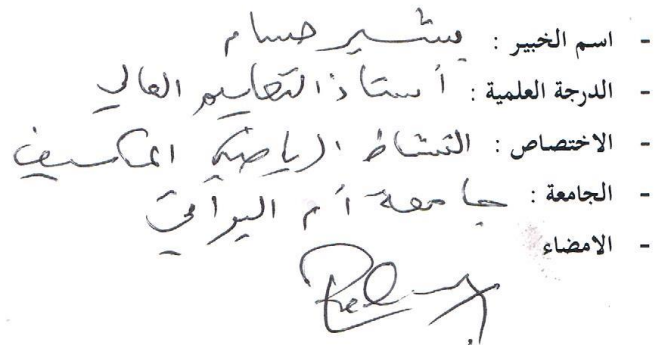 - اسم الخبير : بشير حسام
- الدرجة العلمية : أستاذ التعليم العالي
- الاختصاص : النشاط الرياضي المكيف
- الجامعة : جامعة أم البواقي
- الامضاء